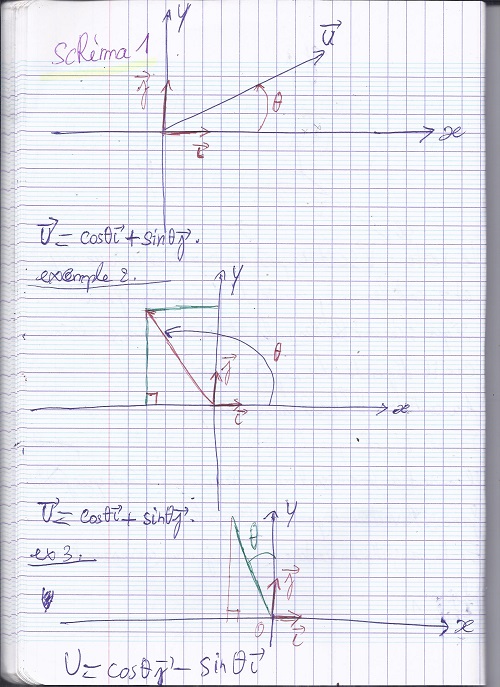 y
schéma 1
u⃗
j⃗
θ
x
i⃗
U⃗ = cosθi⃗ + sinθj⃗.
exemple 2.
y
θ
j⃗
i⃗
x
U⃗ = cosθi⃗ + sinθj⃗.
y
ex 3.
θ
j⃗
O
i⃗
x
U = cosθj⃗ - sinθi⃗